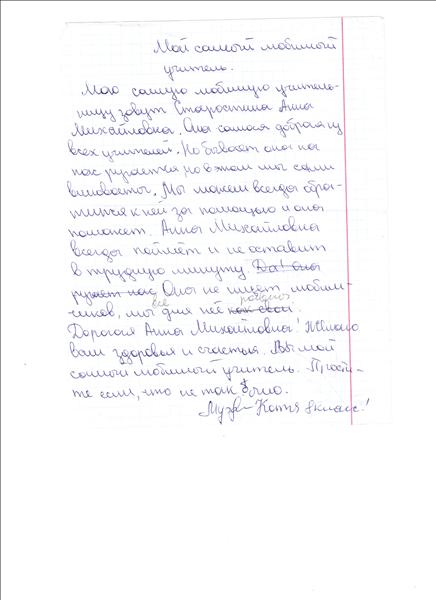 Мой самый любимый
учитель.
Мою самую любимую учитель-
ницу зовут Старостина Анна
Михайловна. Она самая добрая из
всех учителей. Но бывает она на
нас ругается но в этом мы сами
виноваты. Мы можем всегда обра-
титься к ней за помощью и она
поможет. Анна Михайловна
всегда поймёт и не оставит
в трудную минуту. Да! она
ругает нас, Она не ищет любим-
чиков, мы все для неё как свои родные.
Дорогая Анна Михайловна! Желаю
вам здоровья и счастья. Вы мой
самый любимый учитель. Прости-
те если, что не так было.
Катя 8 класс!